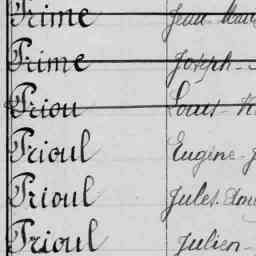 Prime Jean
Prime Joseph
Priou Louis
Prioul Eugène
Prioul Jules
Prioul Julien